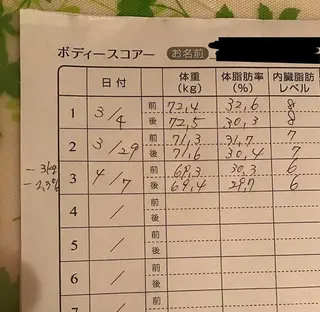 ボディースコアー お名前
日付 体重(kg) 体脂肪率(%) 内臓脂肪レベル
1 3/4 前 72,4 32,6 8
後 72,5 30,3 8
2 3/29 前 71,3 31,7 7
後 71,6 30,4 7
-3kg
3 4/7 前 69,3 30,3 6
-2,3%
後 69,4 29,7 6
4 / 前
後
5 / 前
後
6 / 前
後
7 / 前
後